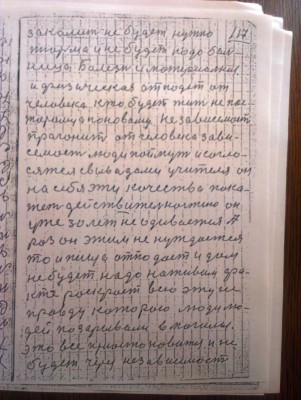 117
закалит не будет нужно
тюрма и не будет надо бал
ница. Болезн и материалния
и физическая отпадет от
человека. кто будет жит не по с
тарому а по новому независимост
прагонит от человека зави-
семост люди поймут и согло-
сятся с вивадами учителя он
на себя эти качества пока-
жет действительностию он
уже 30 лет не одевается А
раз он этим не нуждается
то и пища отпадает и дом
не будет надо наживат фа-
кт раскроет всю эту
правду которого люди лю-
дей позаривали в могилы.
это все приостановится и не
будет чем независимост